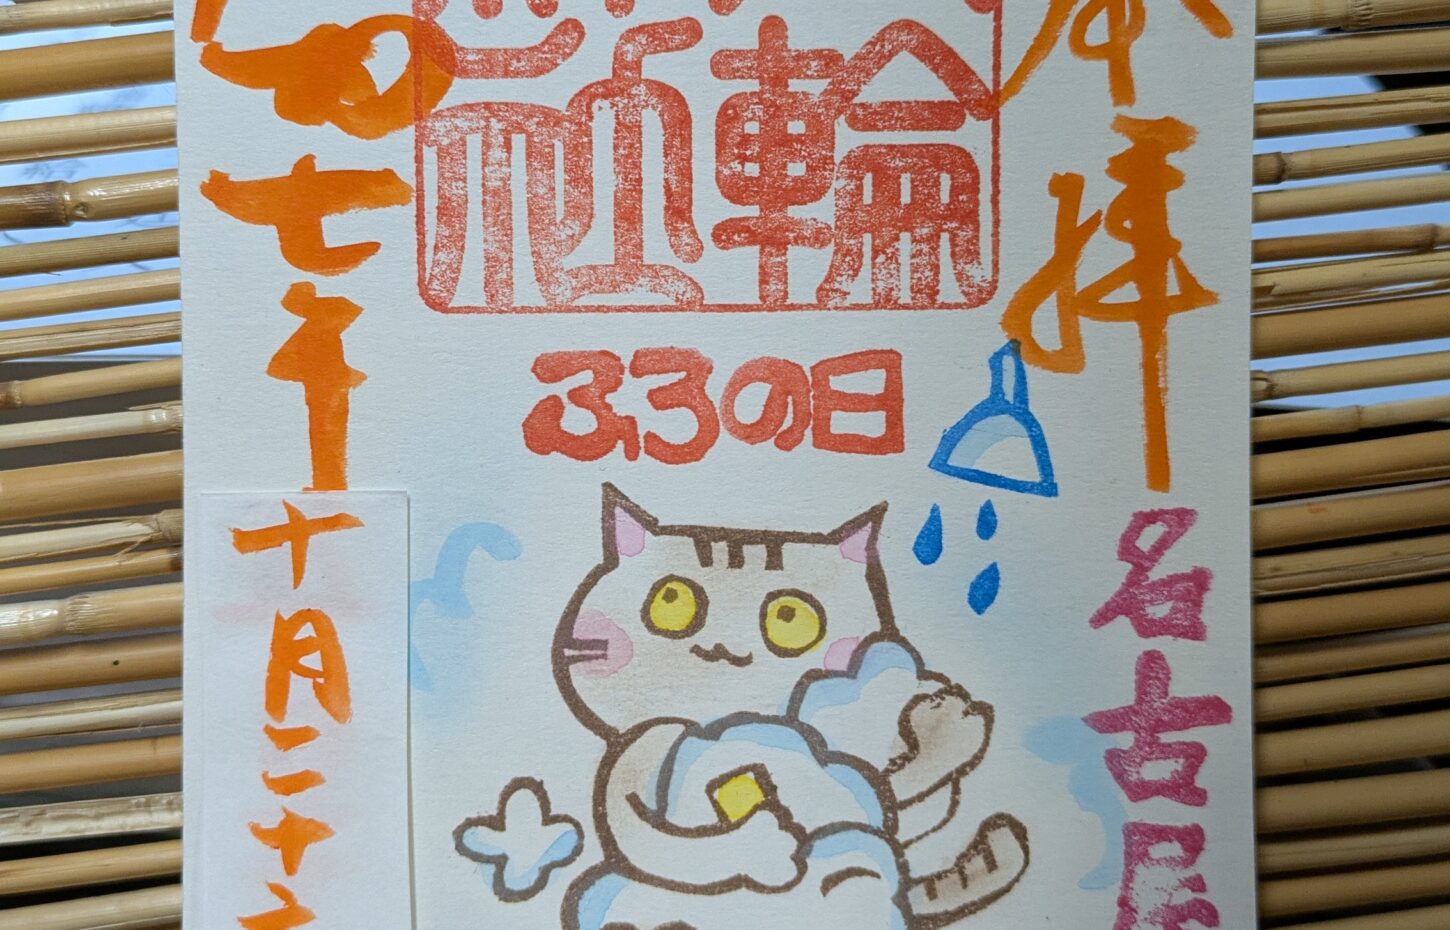 奉拝
名古屋
輪
社
ふろの日
七年
十月二十